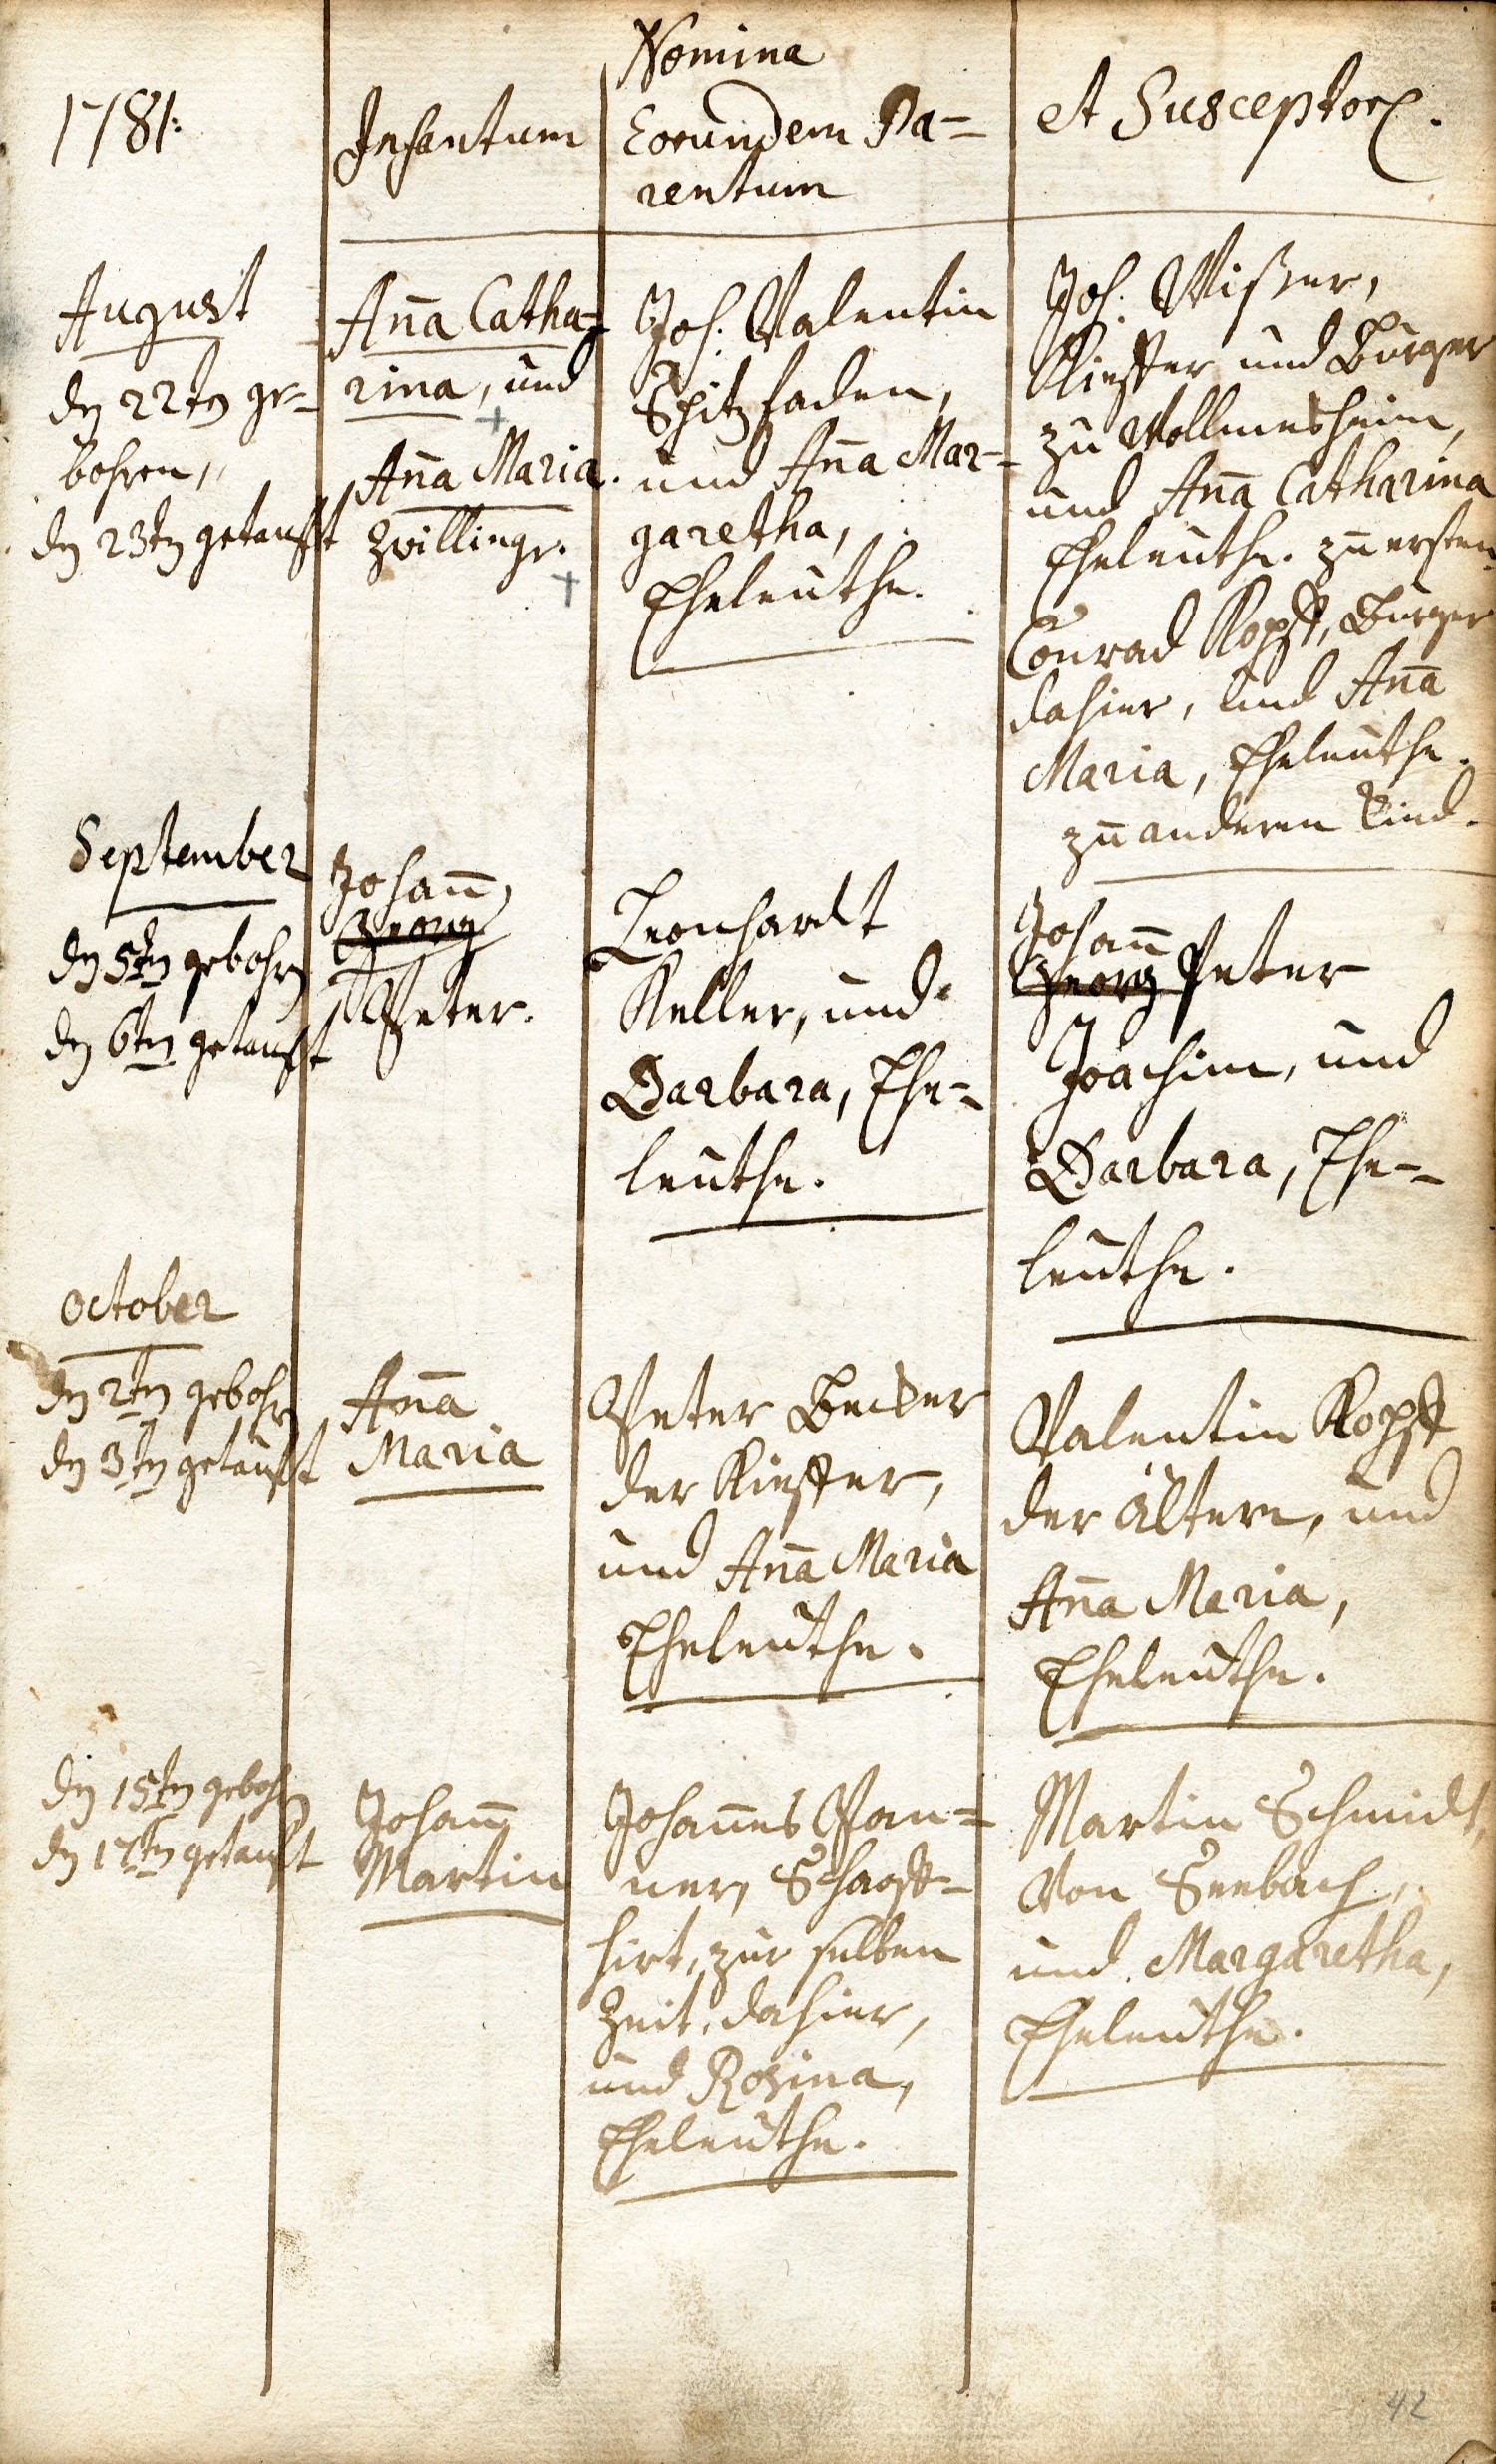 1781:
Infantum
Nomina
Eorundem Pa-
rentum
et Susceptor.
August
den 22ten ge-
bohren,
den 23ten getaufft
Aña Catha-
rina, und
Aña Maria.
Zwillinge.
Joh: Valentin
Spitzfaden,
und Aña Mar-
garetha,
Eheleuthe.
Joh: Wißer,
Kieffer und Burger
zu Wollmesheim,
und Aña Catharina
Eheleuthe. zu ersten.
Conrad Kopff, Burger
dahier, und Aña
Maria, Eheleuthe.
zu anderen Kind.
September
den 5ten gebohren
den 6ten getaufft
Johañ
Georg
Peter.
Leonhardt
Keller, und
Barbara, Ehe-
leuthe.
Johañ
Georg Peter
Joachim, und
Barbara, Ehe-
leuthe.
October
den 2ten gebohren
den 3ten getaufft
Aña
Maria
Peter Becker
der Kieffer,
und Aña Maria
Eheleuthe.
Valentin Kopff
der ältere, und
Aña Maria,
Eheleuthe.
den 15ten gebohren
den 17ten getaufft
Johañ
Martin
Johañes Wan-
ner, Schaaff-
hirt, zur selben
Zeit, dahier,
und Rosina,
Eheleuthe.
Martin Schmidt,
von Seebach,
und Margaretha,
Eheleuthe.
42